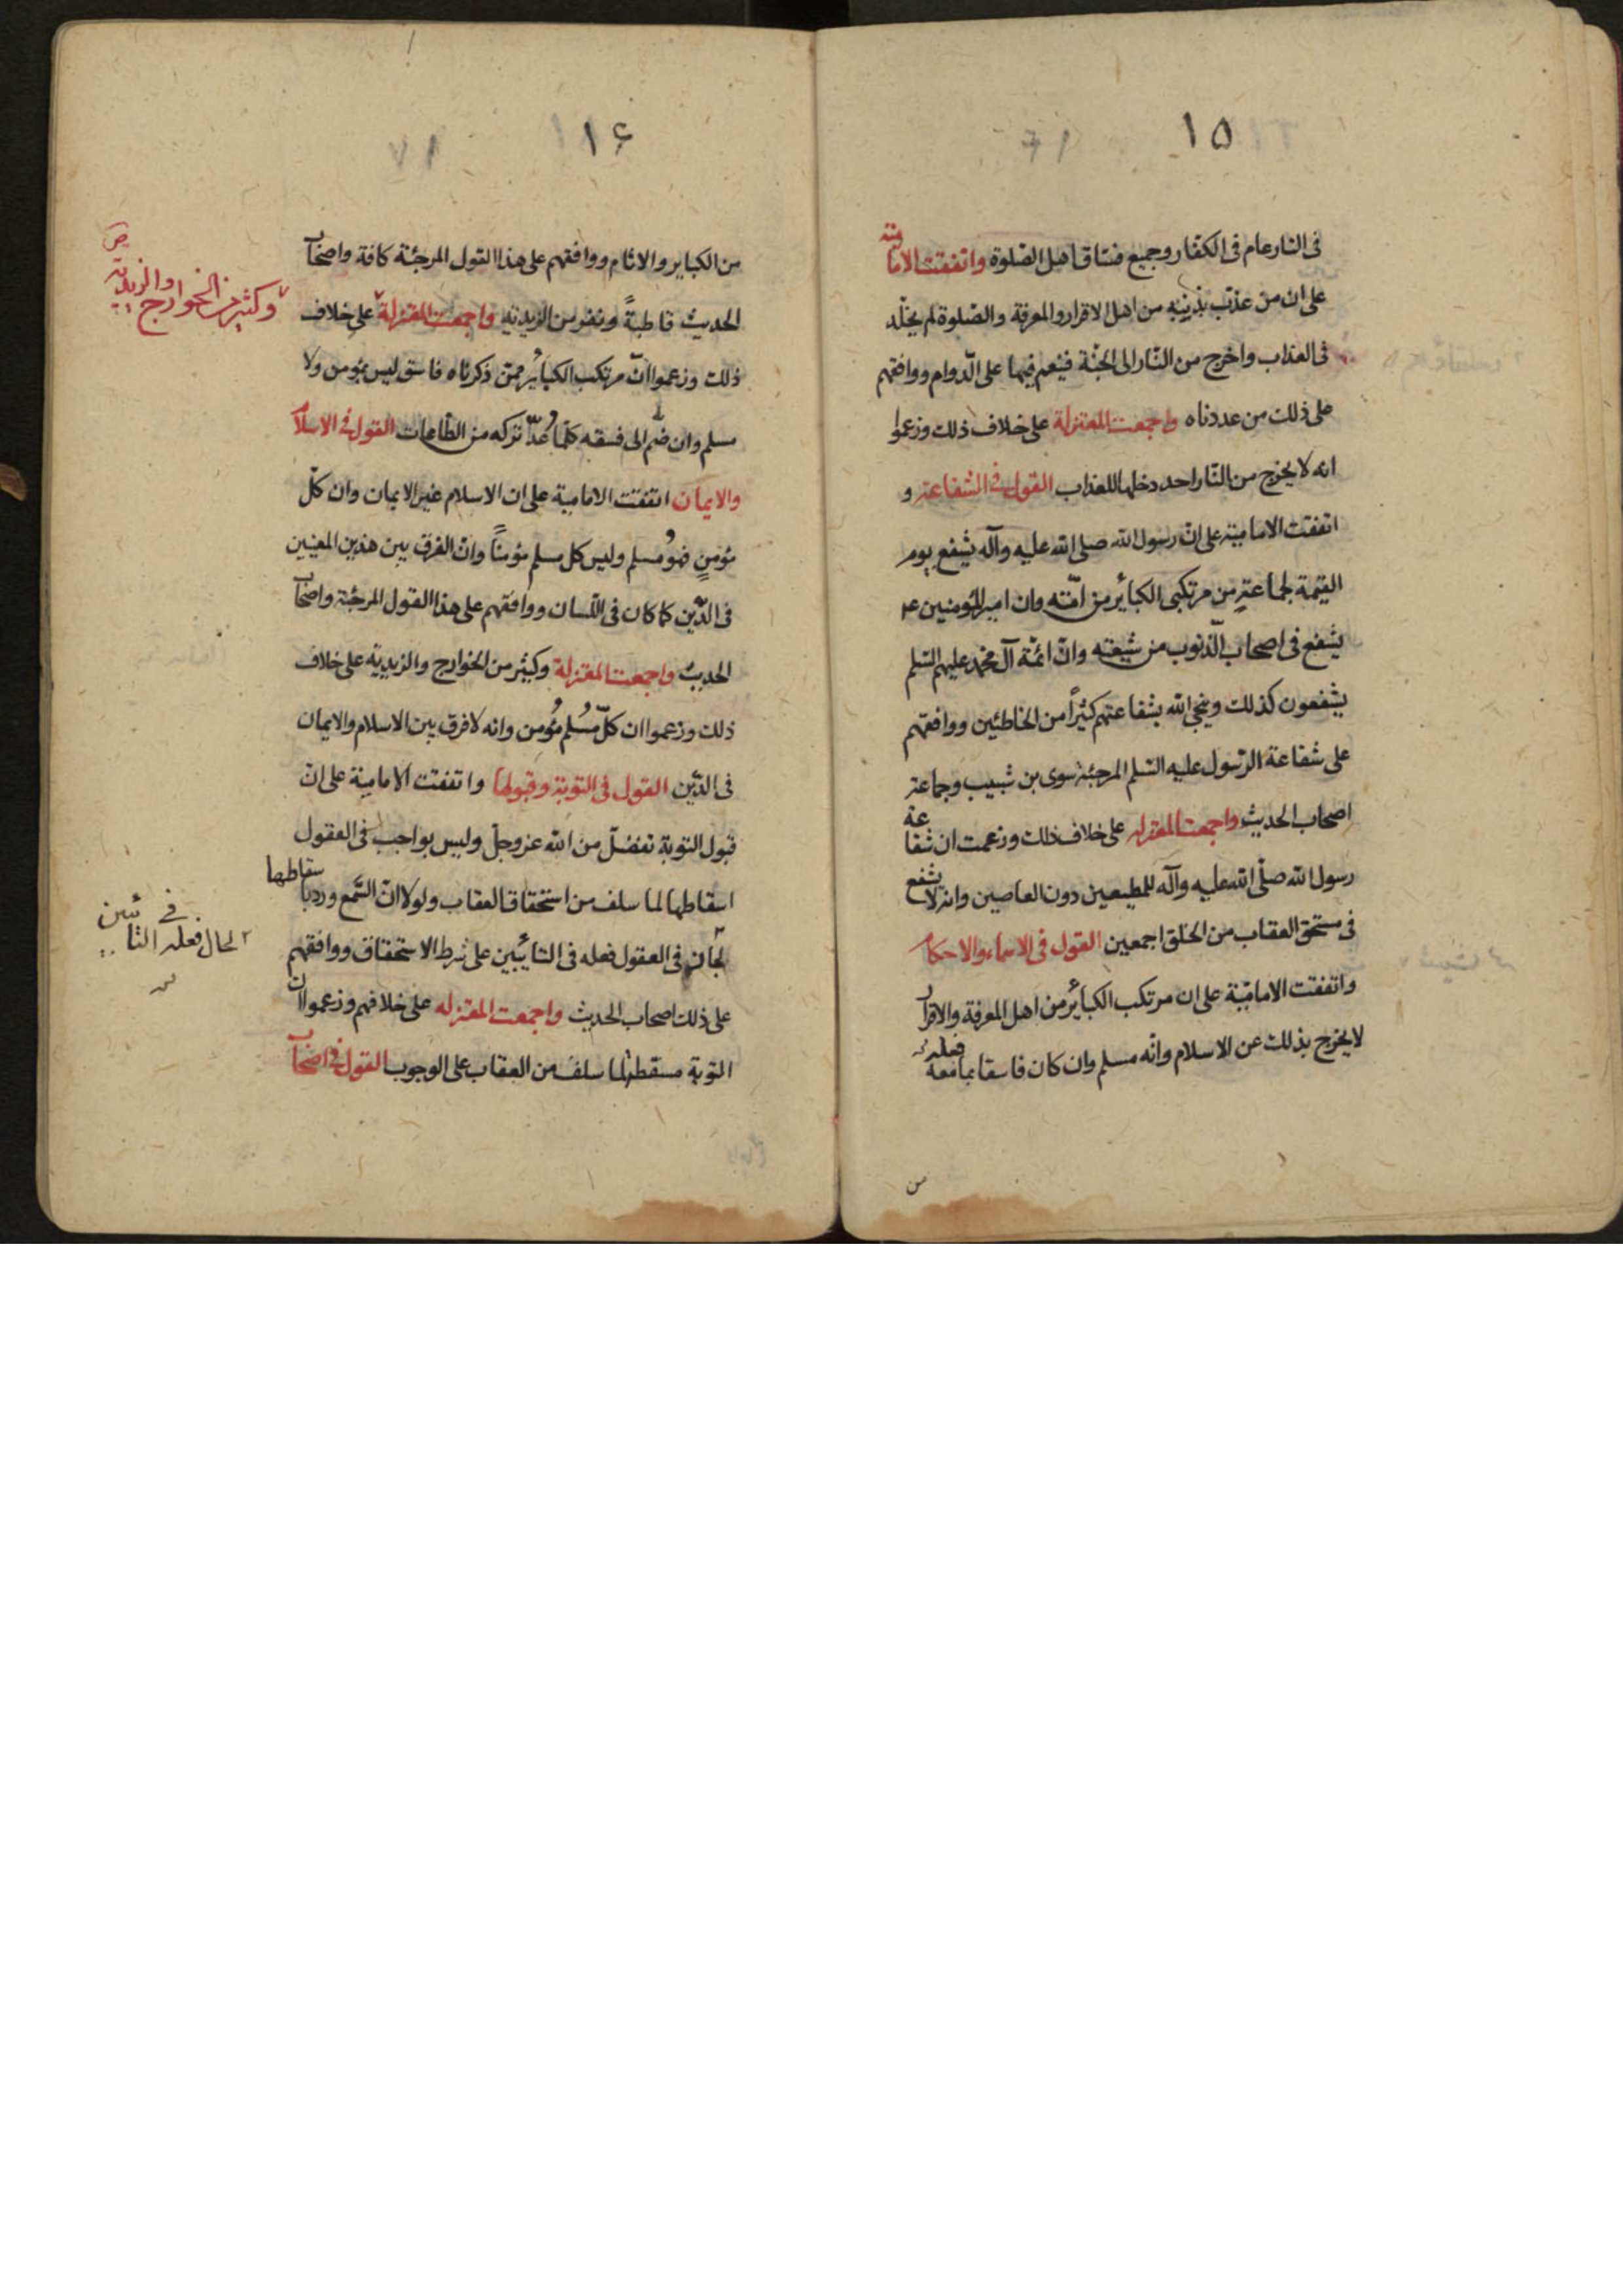 ١٥
فى النار عام فى الكفار وجميع فساق اهل الصلوة واتفقت الامامية
على ان من عذب بذنبه من اهل الاقرار والمعرفة والصلوة لم يخلد
فى العذاب واخرج من النار الى الجنة فينعم فيها على الدوام ووافقهم
على ذلك من عددناه واجمعت المعتزلة على خلاف ذلك وزعموا
انه لا يخرج من النار احد دخلها للعذاب القول فى الشفاعة و
اتفقت الامامية على ان رسول الله صلى الله عليه وآله يشفع يوم
القيمة لجماعة من مرتكبى الكبائر من امته وان امير المؤمنين ع
يشفع فى اصحاب الذنوب من شيعته وان ائمة آل محمد عليهم السلم
يشفعون كذلك وينجى الله بشفاعتهم كثيراً من الخاطئين ووافقهم
على شفاعة الرسول عليه السلم المرجئة سوى بن شبيب وجماعة
اصحاب الحديث واجمعت المعتزله على خلاف ذلك وزعمت ان شفاعة
رسول الله صلى الله عليه وآله للمطيعين دون العاصين وانه لا يشفع
فى مستحق العقاب من الخلق اجمعين القول فى الاسماء والاحكام
واتفقت الامامية على ان مرتكب الكبائر من اهل المعرفة والاقرار
لا يخرج بذلك عن الاسلام وانه مسلم وان كان فاسقا بما معه فعله
من
١۶
من الكباير والاثام ووافقهم على هذا القول المرجئة كافة واصحاب
الحديث قاطبةً ونفر من الزيدية واجمعت المعتزلة على خلاف
وكثير من الخوارج والزيدية
ذلك وزعموا ان مرتكب الكبائر ممن ذكرناه فاسق ليس بمؤمن ولا
مسلم وان ضم الى فسقه كلما عد تركه من الطاعات القول فى الاسلام
والايمان اتفقت الامامية على ان الاسلام غير الايمان وان كل
مؤمنٍ فهو مسلم وليس كل مسلم مؤمناً وان الفرق بين هذين المعنيين
فى الدين كما كان فى اللسان ووافقهم على هذا القول المرجئة واصحاب
الحديث واجمعت المعتزلة وكثير من الخوارج والزيدية على خلاف
ذلك وزعموا ان كل مُسلم مُؤمن وانه لا فرق بين الاسلام والايمان
فى الدين القول فى التوبة وقبولها واتفقت الامامية على ان
قبول التوبة تفضل من الله عز وجل وليس بواجب فى العقول
اسقاطها لما سلف من استحقاق العقاب ولولا ان السمع ورد باسقاطها
لجاز فى العقول فعله فى التايبين على شرط الاستحقاق ووافقهم
لحال فعله فى التائبين
على ذلك اصحاب الحديث واجمعت المعتزله على خلافهم وزعموا ان
التوبة مسقطة لما سلف من العقاب على الوجوب القول فى اصحاب